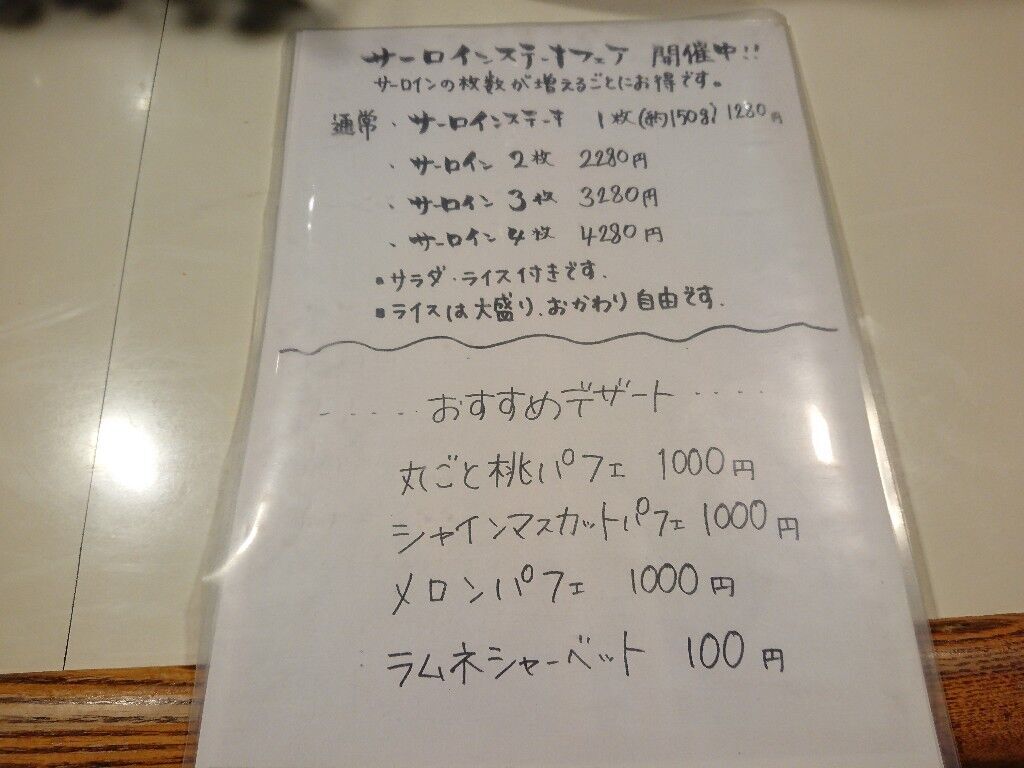 サーロインステーキフェア 開催中!!
サーロインの枚数が増えるごとにお得です。
通常・サーロインステーキ 1枚(約150g) 1280円
・サーロイン 2枚 2280円
・サーロイン 3枚 3280円
・サーロイン 4枚 4280円
▪サラダ・ライス付きです.
▪ライスは大盛り、おかわり自由です.
.....おすすめデザート....
丸ごと桃パフェ 1000円
シャインマスカットパフェ 1000円
メロンパフェ 1000円
ラムネシャーベット 100円